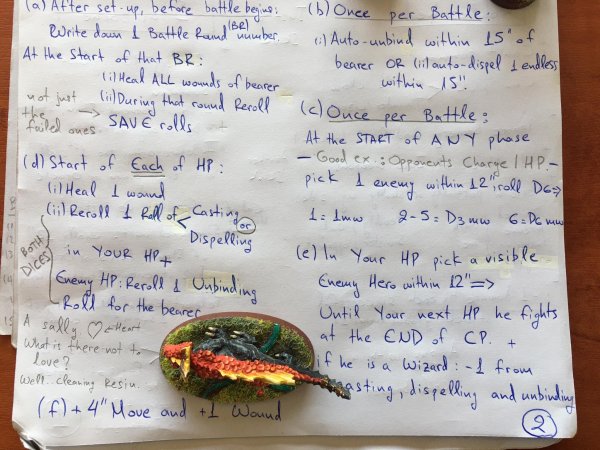 (a) After set-up, before battle begins:
Write down 1 Battle Round (BR) number.
At the Start of that BR:
(i) Heal ALL wounds of bearer
(ii) During that round Reroll
SAVE rolls
not just
the
failed ones
(d) Start of Each of HP:
(i) Heal 1 wound
(ii) Reroll 1 Roll of < Casting or
Dispelling
BOTH DICES
in YOUR HP +
Enemy HP: Reroll 1 Unbinding
Roll for the bearer
A sally ♡ ← Heart
What is there not to
love?
Well.. cleaning Resin.
(f) + 4" Move and +1 Wound
(b) Once per Battle:
(i) Auto-unbind within 15" of
bearer OR (ii) auto-dispel 1 endless
within 15".
(c) Once per Battle:
At the START of ANY phase
- Good ex.: Opponents Charge / HP. -
pick 1 enemy within 12", roll D6 ⇒
1 = 1mw 2-5 = D3 mw 6 = D6 mw
(e) In Your HP pick a visible
Enemy Hero within 12" ⇒
Until Your next HP he fights
at the END of CP. +
if he is a Wizard: -1 from
casting, dispelling and unbinding
2